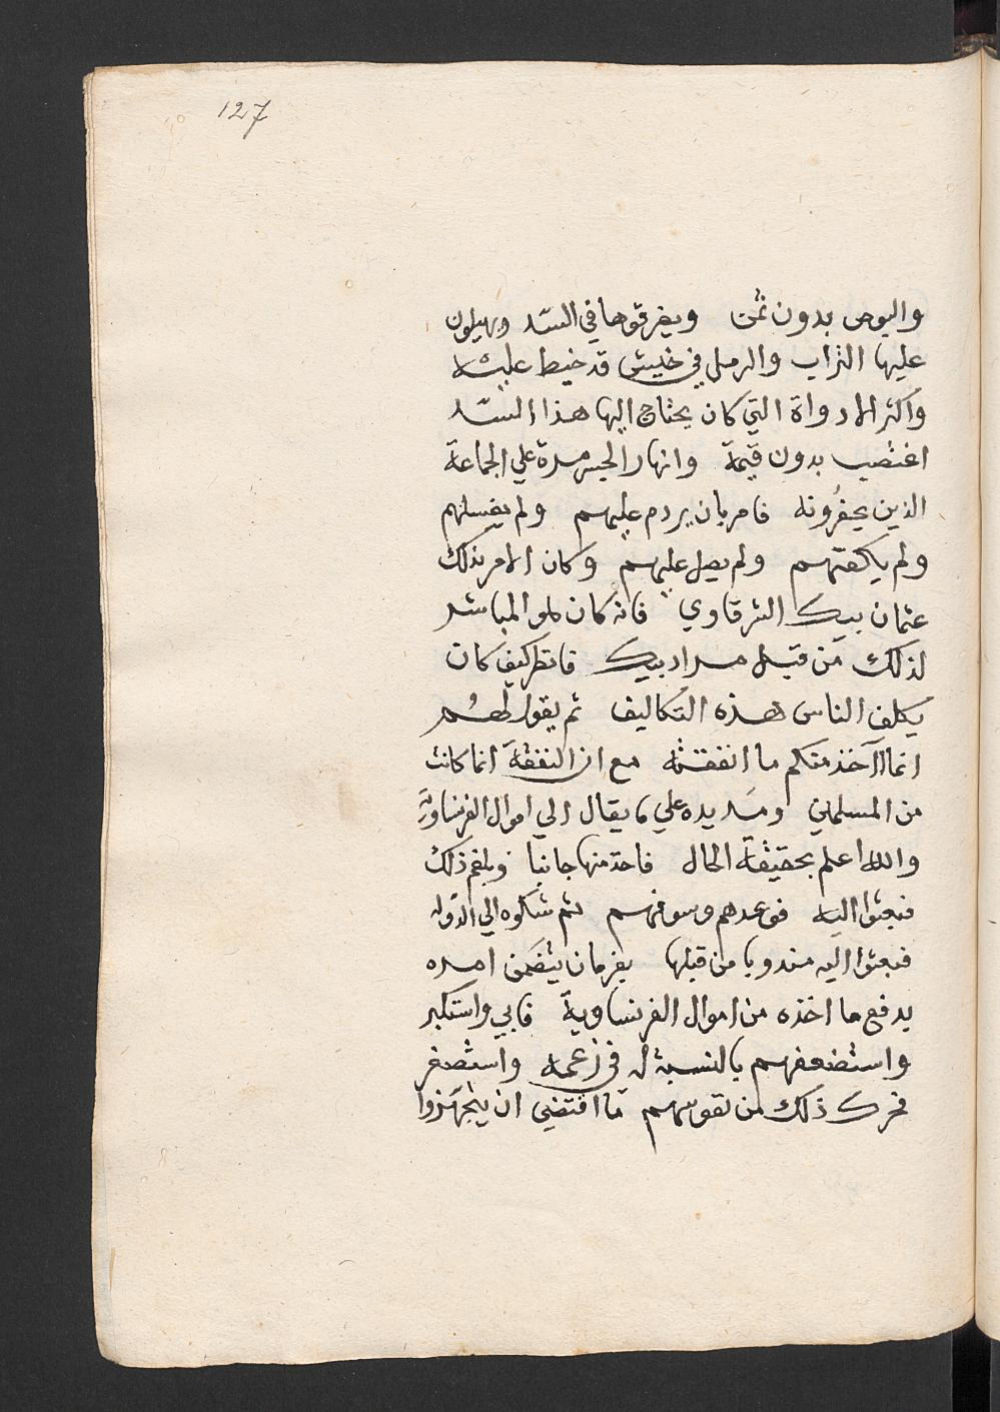 127
والبوص بدون ثمن ويغرقوها في السّد ويهيلون
عليها التراب والرمل في خيش قد خيط عليه
واكثر الادواة التي كان يحتاج اليها هذا السّد
اغتصب بدون قيمة وانهار الجسر مرة علي الجماعة
الذين يحفرُونه فامر بان يردم عليهم ولم يغسلهم
ولم يكفنهم ولم يصل عليهم وكان الامر بذلك
عثمان بيك الشرقاوي فانه كان هو المباشر
لذلك من قبل مراد بيك فانظر كيف كان
يكلف الناس هذه التكاليف ثم يقول لهُم
انما آخذ منكم ما انفقته مع ان النفقة انما كانت
من المسلمين ومَد يده علي ما يقال الي اموال الفرنساويّة
والله اعلم بحقيقة الحال فاخذ منها جانبا وبلغهم ذلك
فبعثوا اليه فوعدهم وسوفهم ثم شكوه الي الدّوله
فبعثوا اليه مندوبا من قبلها بفرمان يتضمن امره
بدفع ما اخذه من اموال الفرنساوية فابي واستكبر
واستضعفهم بالنسبة له في زعمه واستصغر
فحرك ذلك من نفوسهم ما اقتضي ان يتجهّزوا